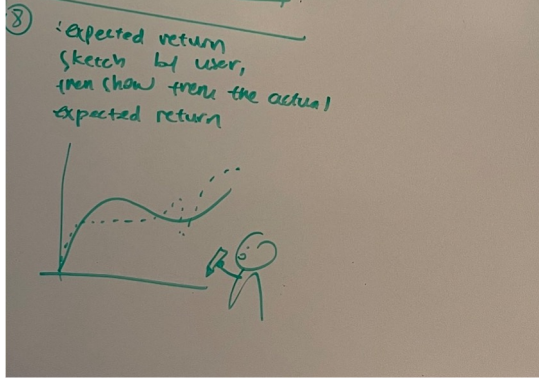 8
: expected return
sketch by user,
then show them the actual
expected return